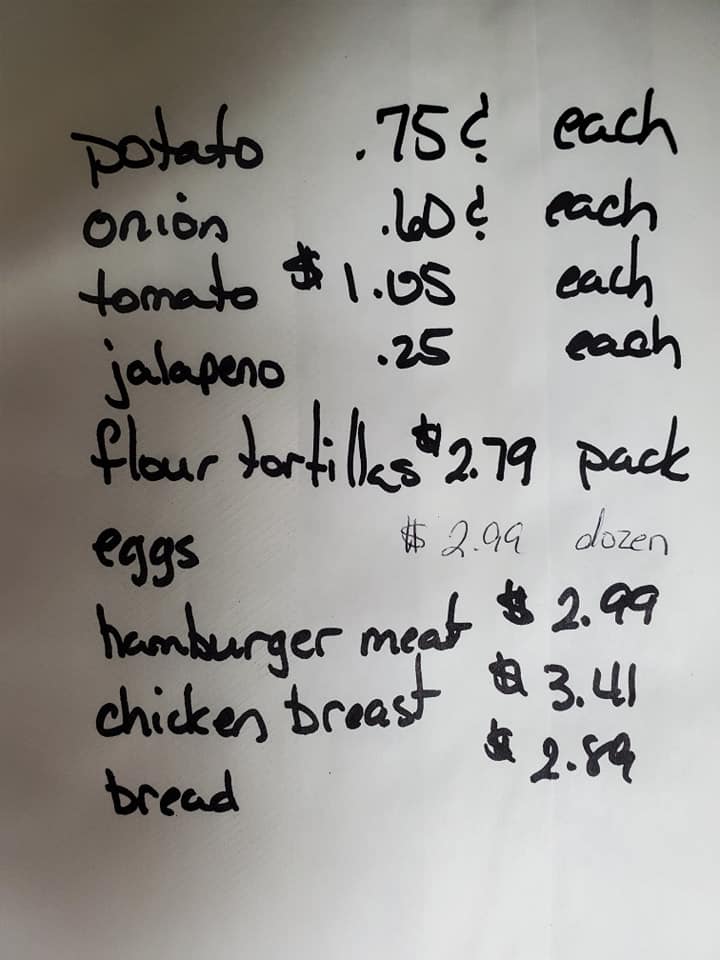 potato .75¢ each
onion .60¢ each
tomato $1.05 each
jalapeno .25 each
flour tortillas $2.79 pack
eggs $2.99 dozen
hamburger meat $2.99
chicken breast $3.41
bread $2.89